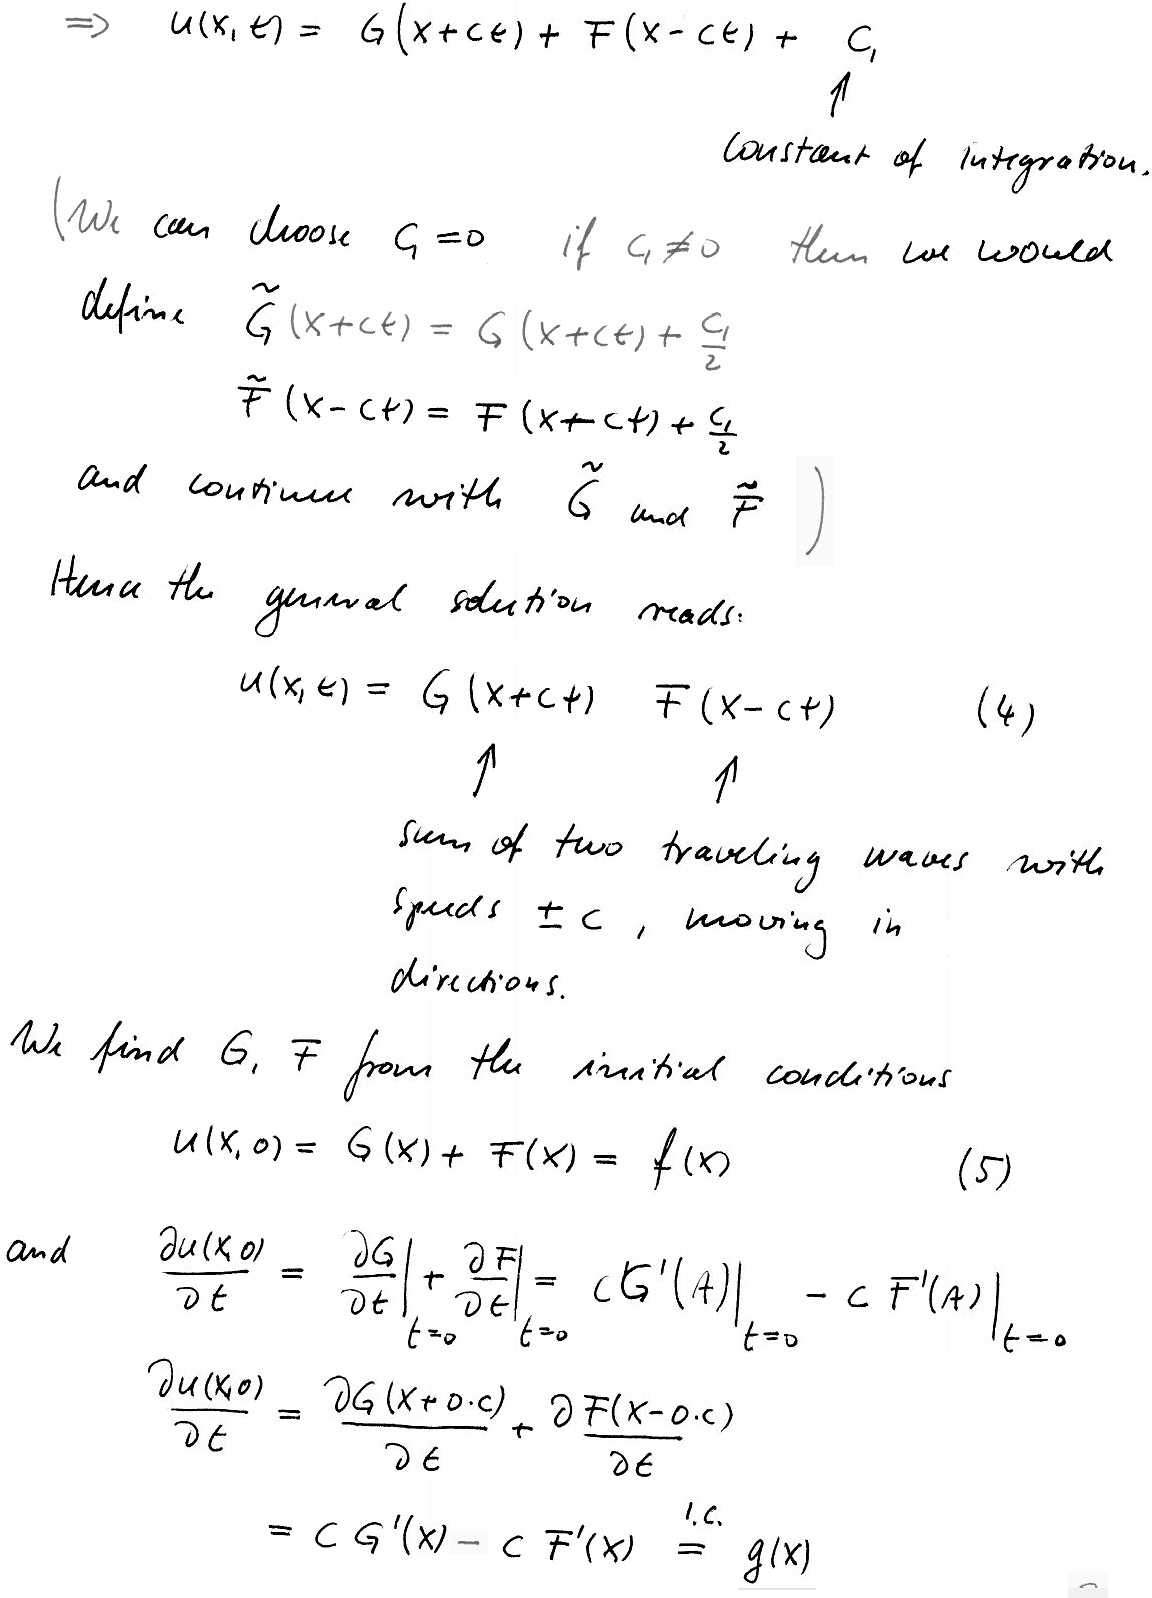 ⇒ u(x,t) = G(x+ct) + F(x-ct) + C₁
↑
constant of integration.
(We can choose C₁=0 if C₁≠0 then we would
define G̃(x+ct) = G(x+ct) + C₁/2
F̃(x-ct) = F(x+ct) + C₁/2
and continue with G̃ and F̃)
Hence the general solution reads:
u(x,t) = G(x+ct) F(x-ct) (4)
↑ ↑
sum of two traveling waves with
speeds ± c, moving in
directions.
We find G, F from the initial conditions
u(x,0) = G(x) + F(x) = f(x) (5)
and ∂u(x,0)/∂t = ∂G/∂t|t=0 + ∂F/∂t|t=0 = cG'(A)|t=0 - c F'(A)|t=0
∂u(x,0)/∂t = ∂G(x+0·c)/∂t + ∂F(x-0·c)/∂t
= c G'(x) - c F'(x) i.c. = g(x)